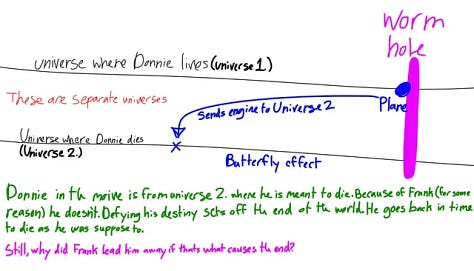 Worm
hole
universe where Donnie lives (universe 1)
These are separate universes
Sends engine to Universe 2
Plane
Universe where Donnie dies
(Universe 2.)
Butterfly effect
Donnie in th movie is from universe 2. where he is meant to die. Because of Frank (for some
reason) he doesnt. Defying his destiny sets off th end of th world. He goes back in time
to die as he was suppose to.
Still, why did Frank lead him away if thats what causes th end?